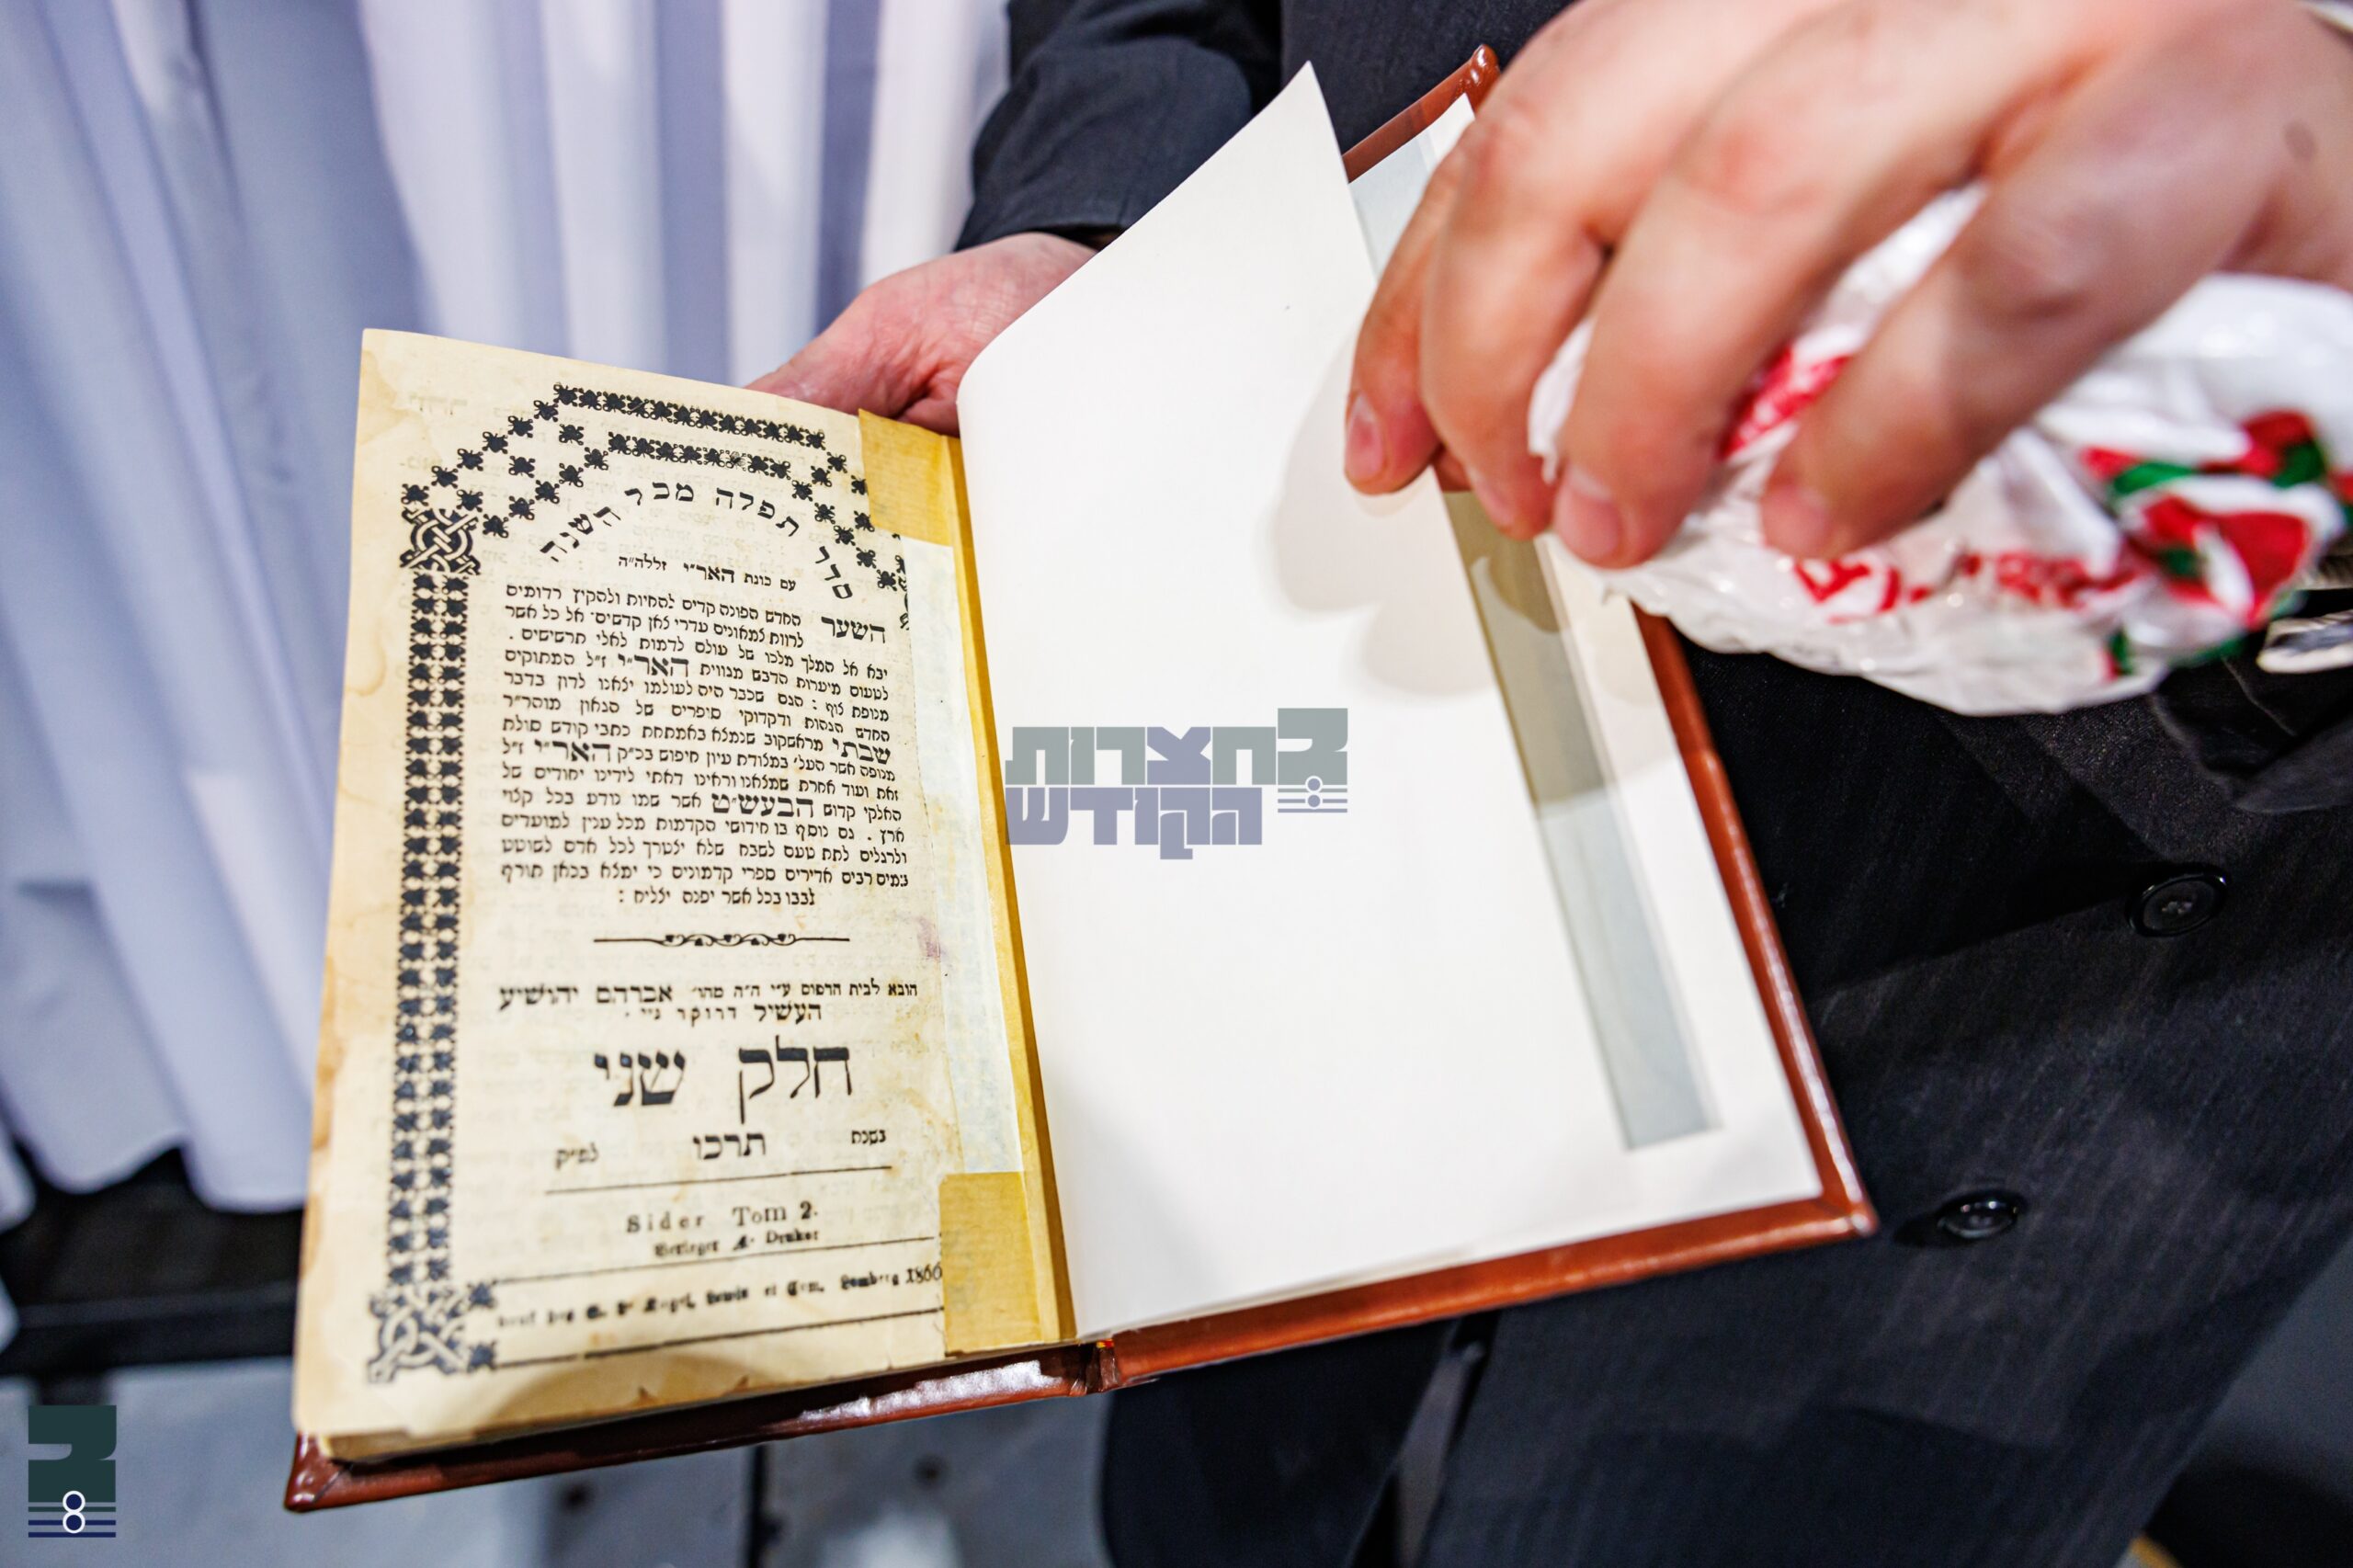 סדר תפלה מכל השנה
עם כונת האר״י זללה״ה
השער החדש הפונה קדים להחיות ולהקיץ רדומים
לרוות צמאונים עדרי צאן קדשים׳ אל כל אשר
יבא אל המלך מלכו של עולם לדמות לאלי תרשישים .
לטעום מיערות הדבש מגווית האר״י ז״ל המתוקים
מנופת צוף : הגם שכבר היה לעולמו יצאנו לדון בדבר
החדש הנחות ודקדוקי סופרים של הגאון מוהר״ר
שבתי מראשקוב שנמצא באמתחת כתבי קודש סולת
מנופה אשר העל׳ במצודת עיון חיפוש בכ״ק האר״י ז״ל
זאת ועוד אחרת שמצאנו וראינו דאתי לידינו יחודים של
האלקי קדוש הבעש״ט אשר שמו נודע בכל קצוי
ארץ . גם נוסף בו חידושי הקדמות מכל ענין למועדים
ולרגלים לתת טעם לשבח שלא יצטרך לכל אדם לשוטט
במים רבים אדירים ספרי קדמונים כי ימצא בכאן תורף
לבבו בכל אשר יפנה יצליח :
הובא לבית הדפוס ע״י ה״ה מהו׳ אברהם יהושיע
העשיל דרוקר נ״י .
חלק שני
בשנת תרכו לפ״ק
Sider Tom 2.
Verleger A. Druker
Lemberg 1866
בחצרות
הקודש